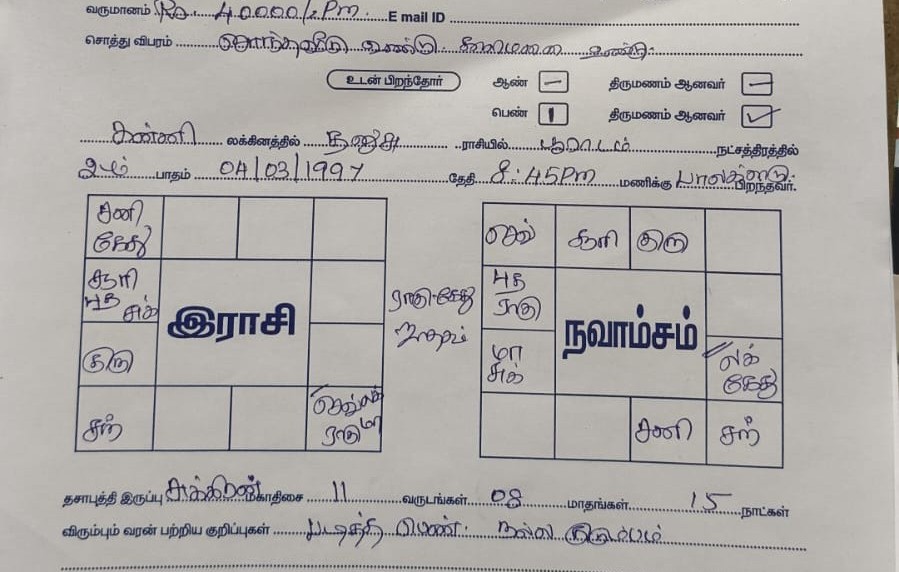 வருமானம் Rs. 40000/-Pm E mail ID
சொத்து விபரம் சொந்த வீடு உண்டு. உண்டு.
உடன் பிறந்தோர் ஆண் – திருமணம் ஆனவர் –
பெண் 1 திருமணம் ஆனவர் ✓
கன்னி லக்கினத்தில் தனுசு ராசியில் பூராடம் நட்சத்திரத்தில்
2ம் பாதம் 04/03/1997 தேதி 8:45Pm மணிக்கு பிறந்தவர்.
சனி
கேது
சூரி
புத சுக்
இராசி
குரு
சந்
செவ் லக்
ராகு மா
ராகு-கேது
ஜாதகம்
செவ் சூரி குரு
புத
ராகு
நவாம்சம்
மா
சுக்
லக்
கேது
சனி சந்
தசாபுத்தி இருப்பு சுக்கிரன் மகாதிசை 11 வருடங்கள் 08 மாதங்கள் 15 நாட்கள்
விரும்பும் வரன் பற்றிய குறிப்புகள் படித்த பெண். நல்ல குடும்பம்